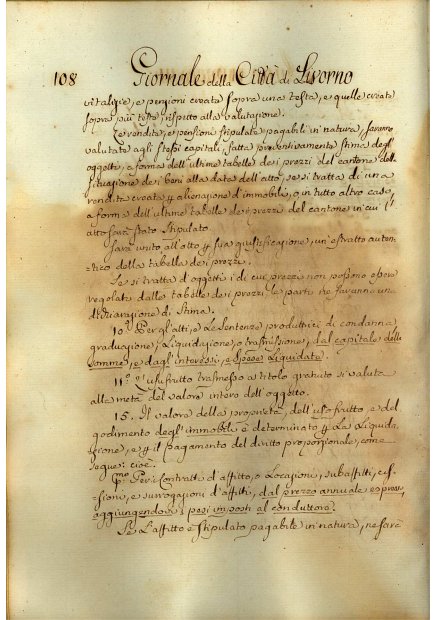 108 Giornale della Città di Livorno
vitalizie, e pensioni create sopra una testa, e quelle create
sopra più teste rispetto alla valutazione.
Le rendite, e pensioni stipulate pagabili in natura, saranno
valutate agli stessi capitali, fatta preventivamente stima degli
oggetti, a forma dell'ultime tabelle dei prezzi del cantone della
situazione dei beni alla data dell'atto, se si tratta di una
rendita creata p alienazione d'immobili, o in tutto altro caso,
a forma dell'ultime tabelle dei prezzi del cantone in cui l'
atto sarà stato stipulato.
Sarà unito all'atto p sua giustificazione, un'estratto auten-
tico della tabella dei prezzi.
Se si tratta d'oggetti i di cui prezzi non possono essere
regolati dalle tabelle dei prezzi le parti ne faranno una
dichiarazione di stima.
10. Per gl'atti, e le Sentenze produttrici di condanna
graduazione, liquidazione, o trasmissione, dal capitale delle
somme, e dagl'interessi, e spese liquidate.
11.° L'usufrutto trasmesso a titolo gratuito si valuta
alla metà del valore intero dell'oggetto.
15. Il valore della proprietà, dell'usofrutto, e del
godimento degl'immobili è determinato p la liquida-
zione, e p il pagamento del diritto proporzionale, come
segue: cioè.
p.mo Per i Contratti d'affitto, o Locazioni, subaffitti, ces-
sioni, e surrogazioni d'affitti, dal prezzo annuale espresso,
aggiungendovi i pesi imposti al conduttore.
Se l'affitto è stipulato pagabile in natura, ne sarà